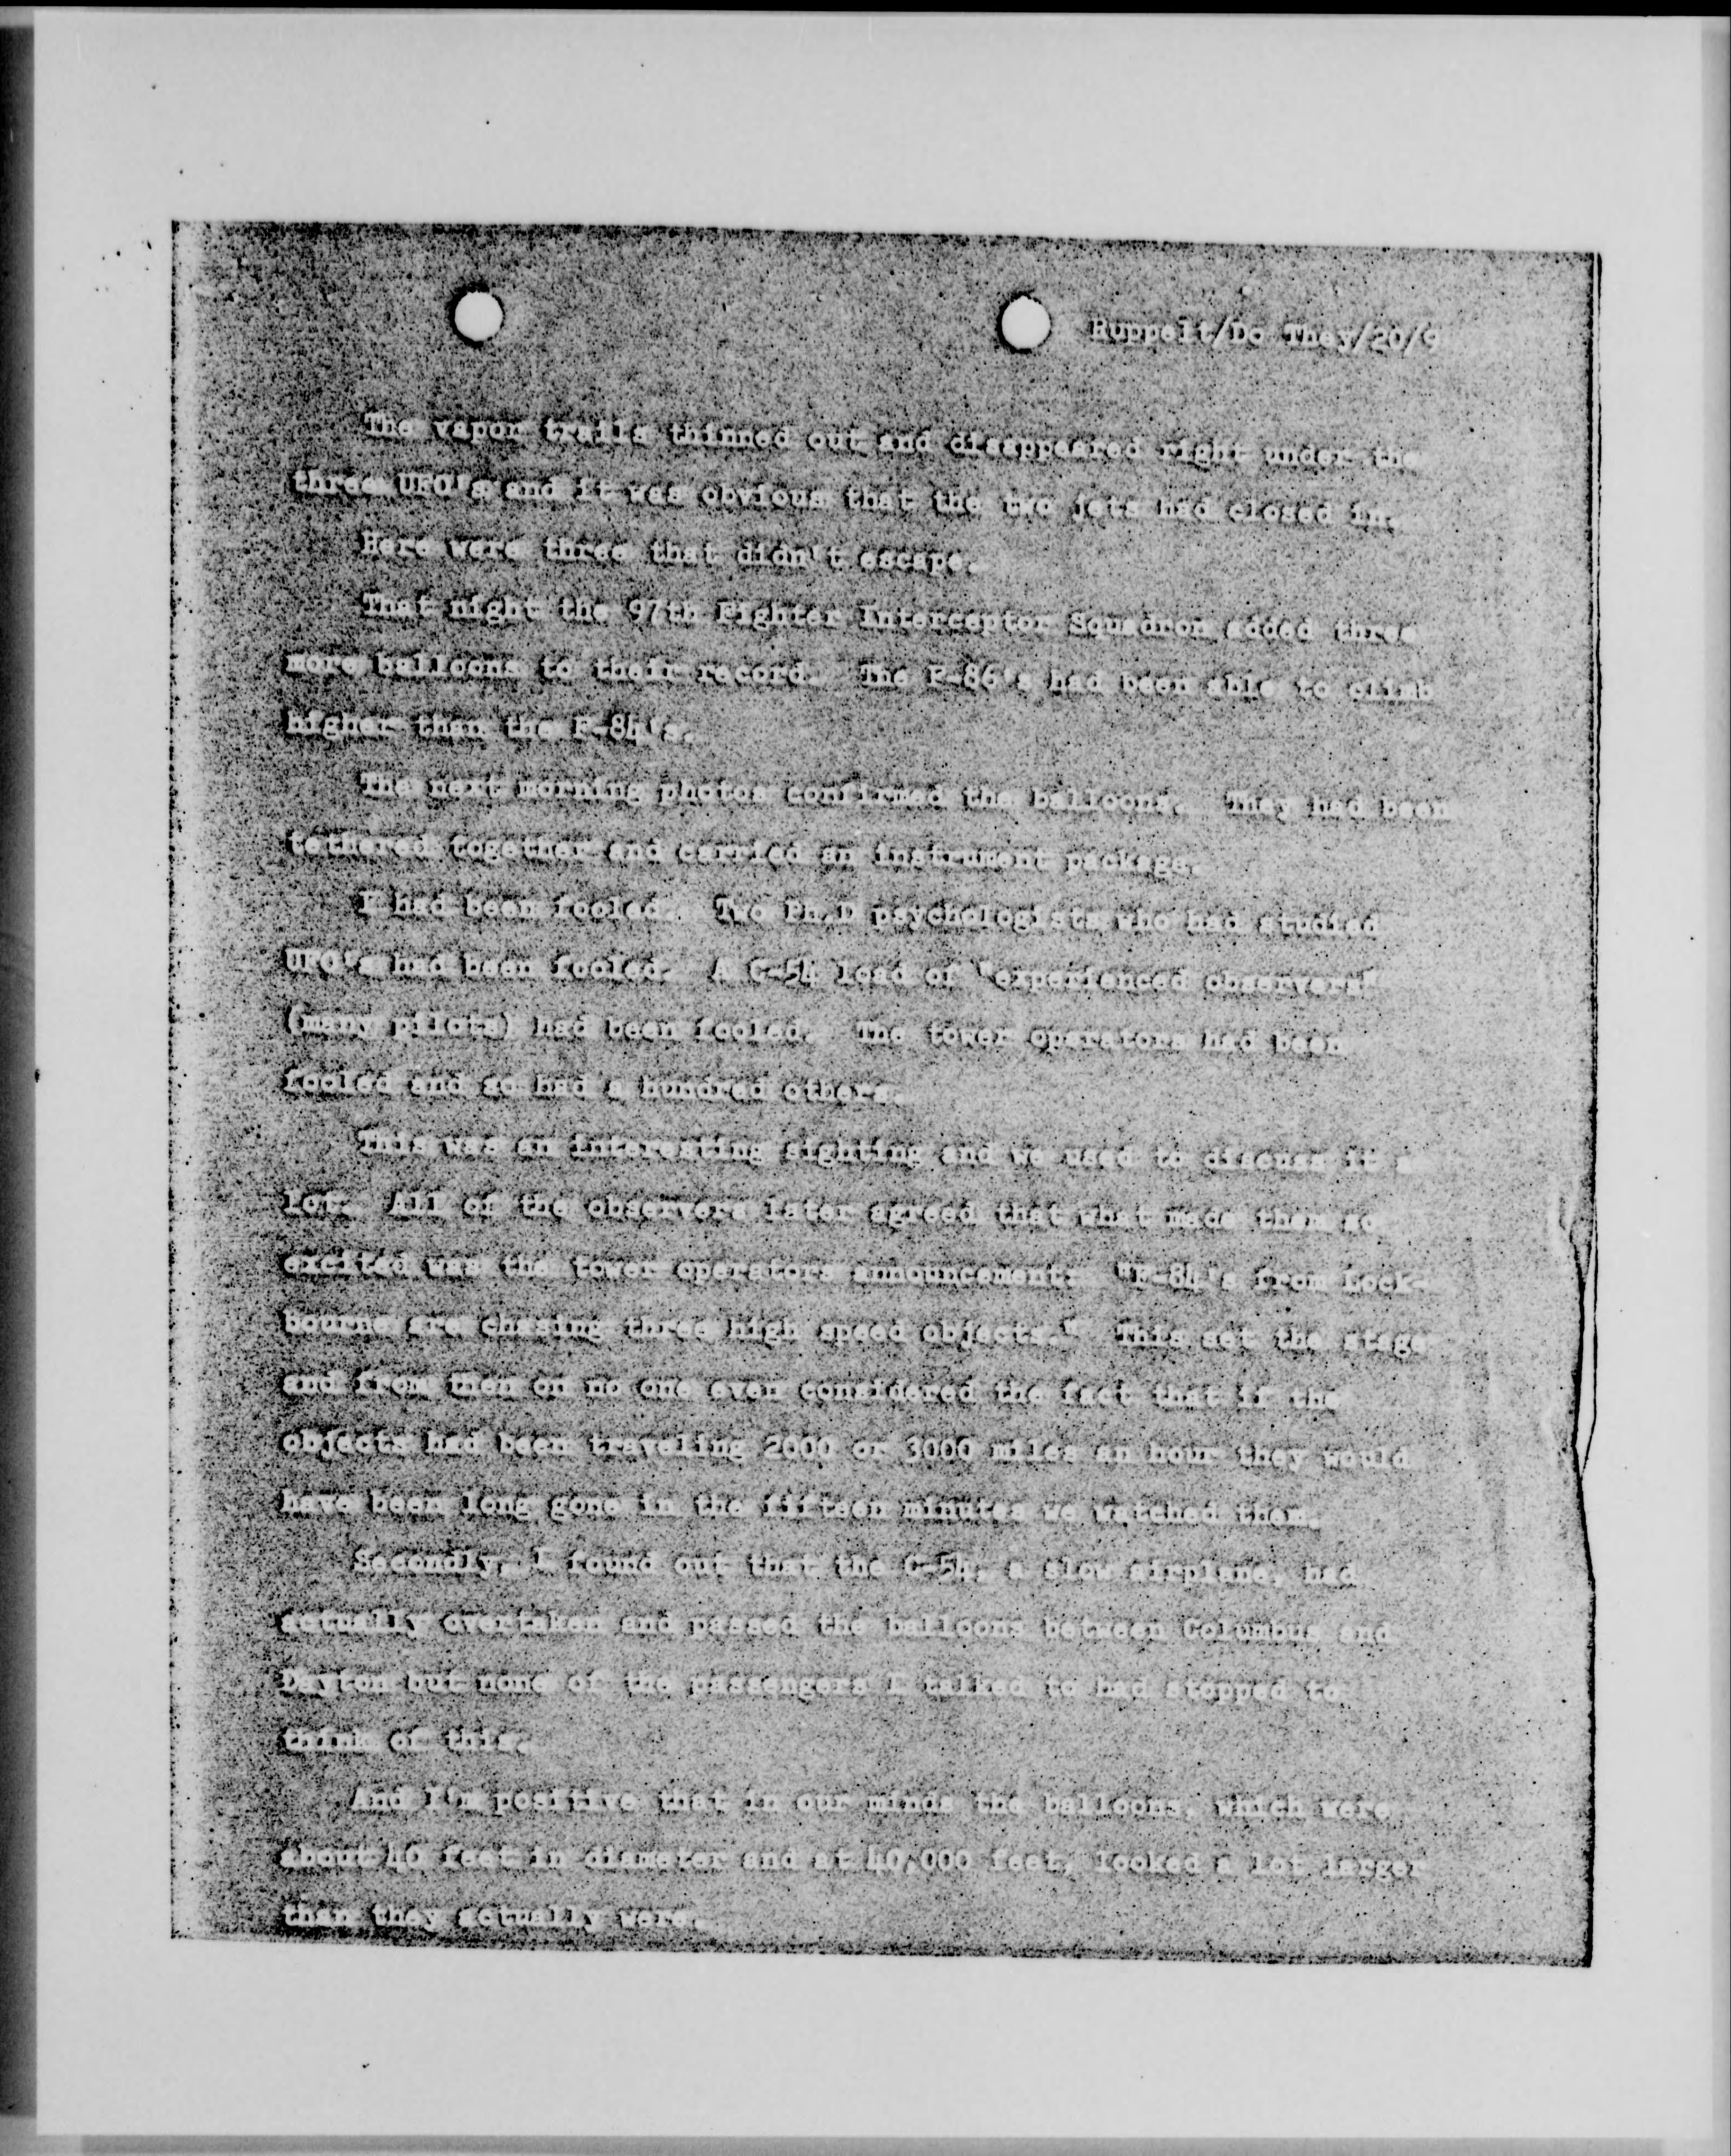 Ruppelt/Do They/20/9
The vapor trails thinned out and disappeared right under the
three UFO's and it was obvious that the two jets had closed in.
Here were three that didn't escape.
That night the 97th Fighter Interceptor Squadron added three
more balloons to their record. The F-86's had been able to climb
higher than the F-84's.
The next morning photos confirmed the balloons. They had been
tethered together and carried an instrument package.
I had been fooled. Two Ph.D psychologists who had studied
UFO's had been fooled. A C-54 load of "experienced observers"
(many pilots) had been fooled. The tower operators had been
fooled and so had a hundred others.
This was an interesting sighting and we used to discuss it a
lot. All of the observers later agreed that what made them so
excited was the tower operators announcement: "F-84's from Lock-
bourne are chasing three high speed objects." This set the stage
and from then on no one even considered the fact that if the
objects had been traveling 2000 or 3000 miles an hour they would
have been long gone in the fifteen minutes we watched them.
Secondly, I found out that the C-54, a slow airplane, had
actually overtaken and passed the balloons between Columbus and
Dayton but none of the passengers I talked to had stopped to
think of this.
And I'm positive that in our minds the balloons, which were
about 40 feet in diameter and at 40,000 feet, looked a lot larger
than they actually were.